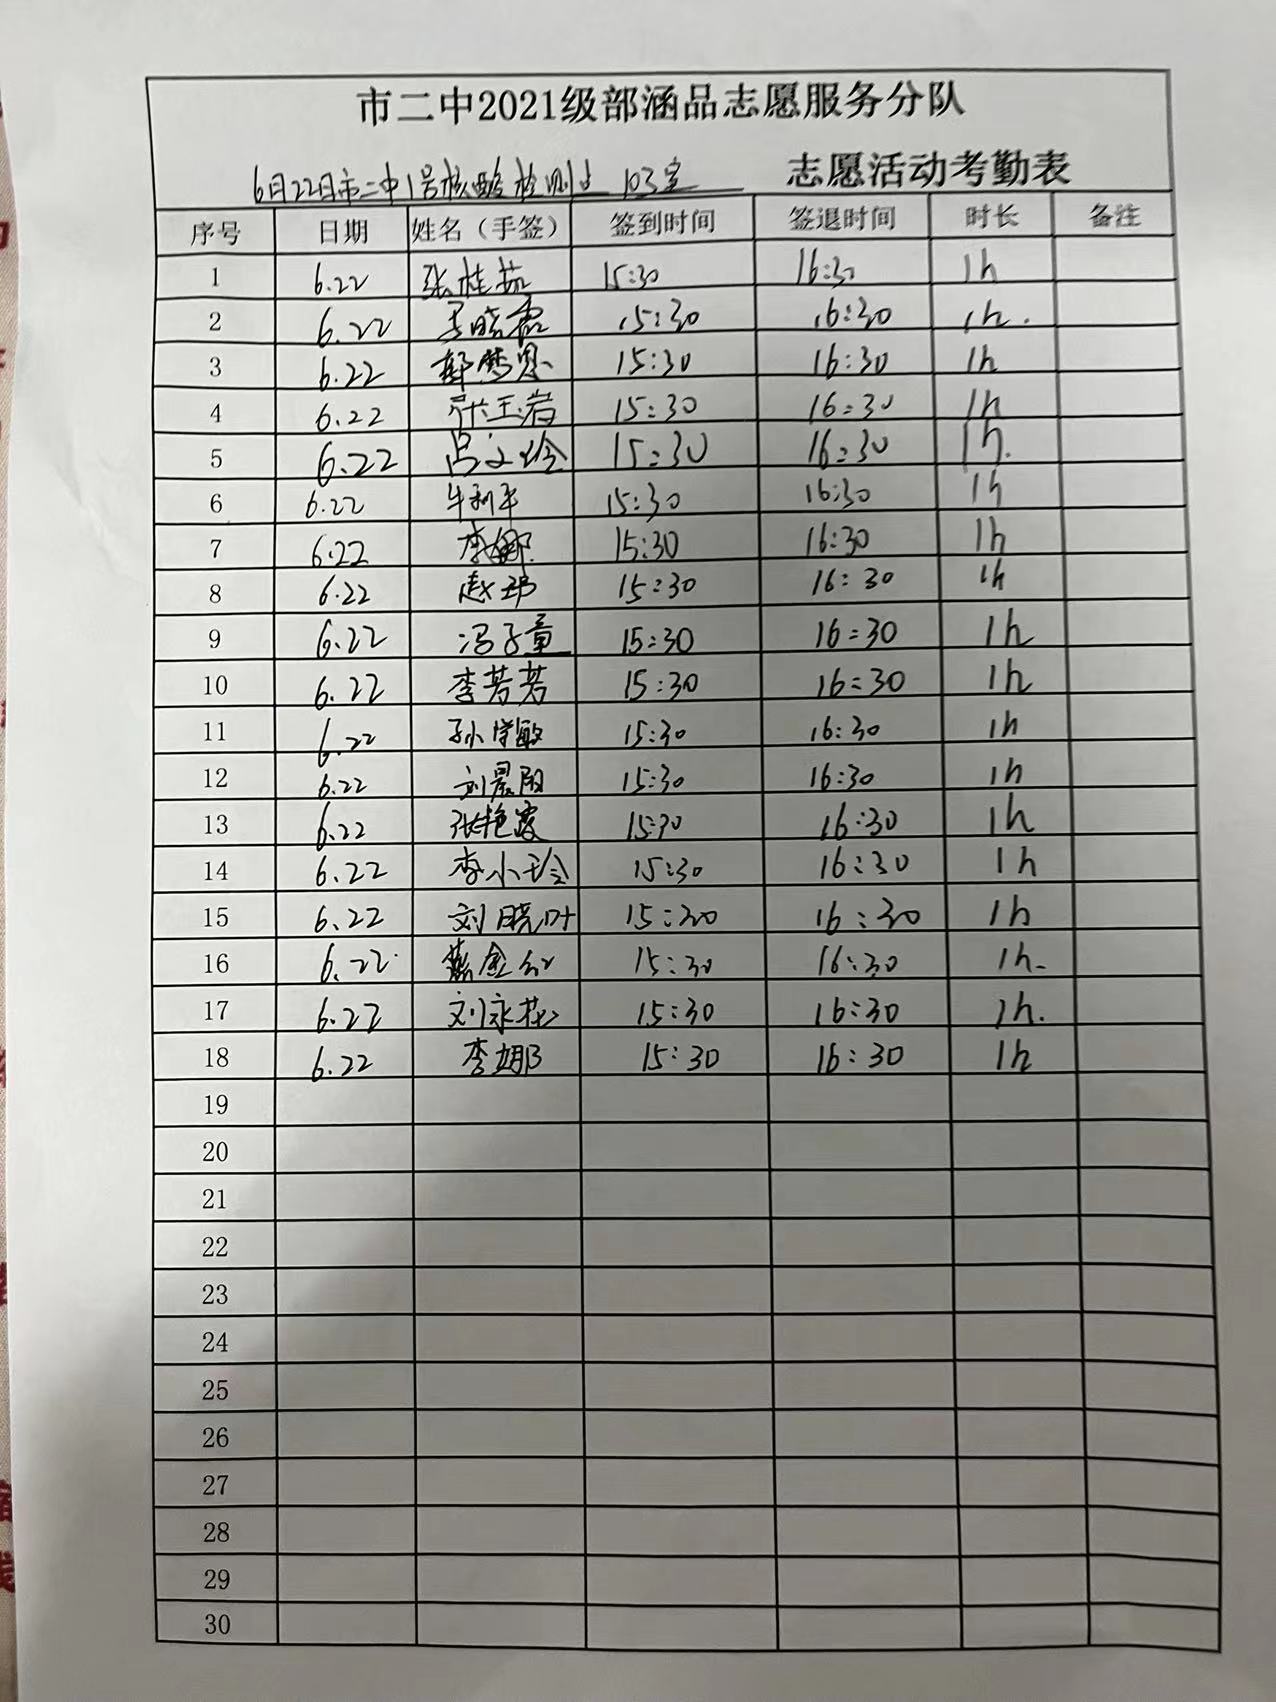 市二中2021级部涵品志愿服务分队
6月22日市二中1号核酸检测点 103室 志愿活动考勤表
序号 日期 姓名（手签） 签到时间 签退时间 时长 备注
1 6.22 张桂茹 15:30 16:30 1h
2 6.22 王晓霞 15:30 16:30 1h.
3 6.22 郭梦思 15:30 16:30 1h
4 6.22 张玉岩 15:30 16:30 1h
5 6.22 吕文玲 15:30 16:30 1h.
6 6.22 牛利平 15:30 16:30 1h
7 6.22 李娜 15:30 16:30 1h
8 6.22 赵 15:30 16:30 1h
9 6.22 冯子童 15:30 16:30 1h
10 6.22 李芳芳 15:30 16:30 1h
11 6.22 孙学敏 15:30 16:30 1h
12 6.22 刘晨阳 15:30 16:30 1h
13 6.22 张艳霞 15:30 16:30 1h
14 6.22 李小玲 15:30 16:30 1h
15 6.22 刘晓叶 15:30 16:30 1h
16 6.22 金红 15:30 16:30 1h.
17 6.22 刘永花 15:30 16:30 1h.
18 6.22 李娜 15:30 16:30 1h
19
20
21
22
23
24
25
26
27
28
29
30